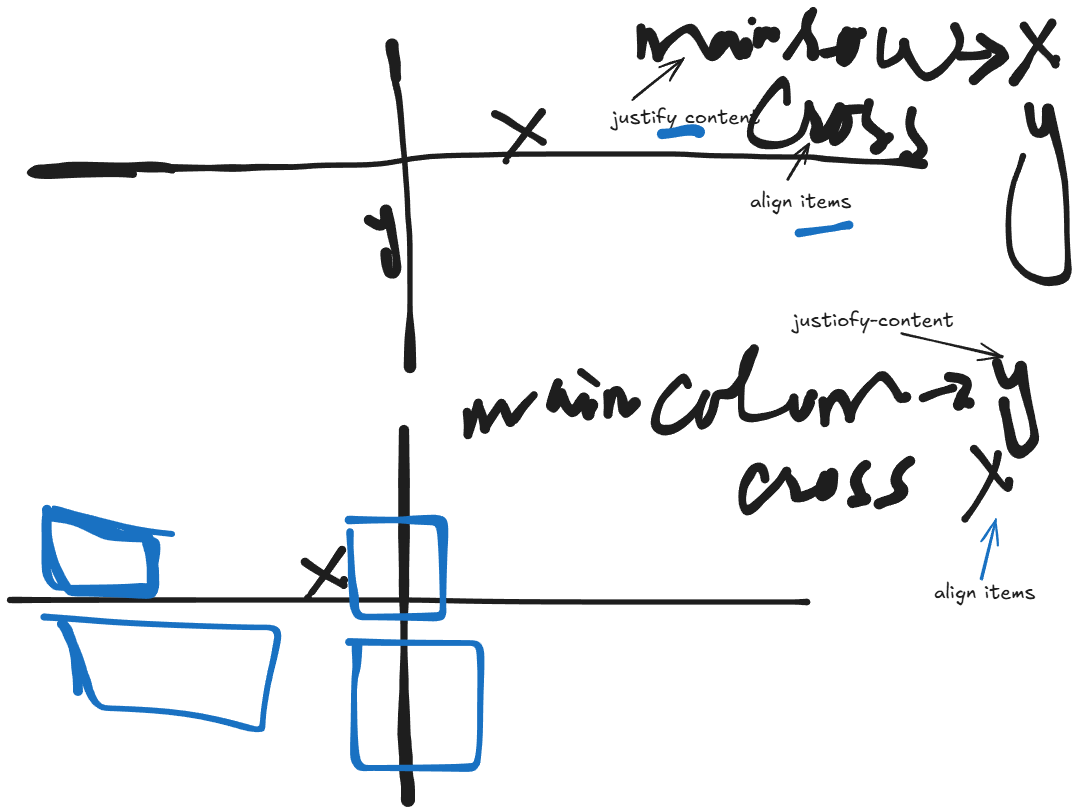 main row → x
justify content
Cross y
x
align items
y
justiofy-content
main column → y
cross x
x
align items